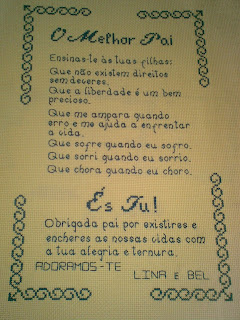 O Melhor Pai
Ensinas-te às tuas filhas:
Que não existem direitos
sem deveres.
Que a liberdade é um bem
precioso.
Que me ampara quando
erro e me ajuda a enfrentar
a vida.
Que sofre quando eu sofro.
Que sorri quando eu sorrio.
Que chora quando eu choro.
És Tu!
Obrigada pai por existires e
encheres as nossas vidas com
a tua alegria e ternura.
ADORAMOS-TE
LINA E BEL